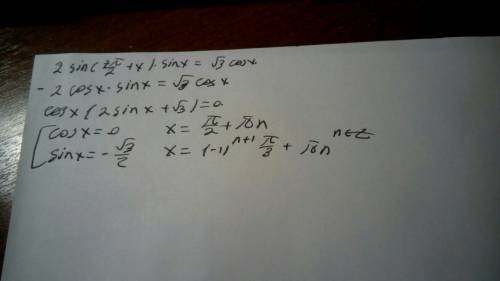 2 sin(7π/2 + x) · sinx = √3 cosx
- 2 cosx · sinx = √3 cosx
cosx (2 sinx + √3) = 0
[ cosx = 0 x = π/2 + πn
sinx = - √3/2 x = (-1)^{n+1} π/3 + πn n∈Z